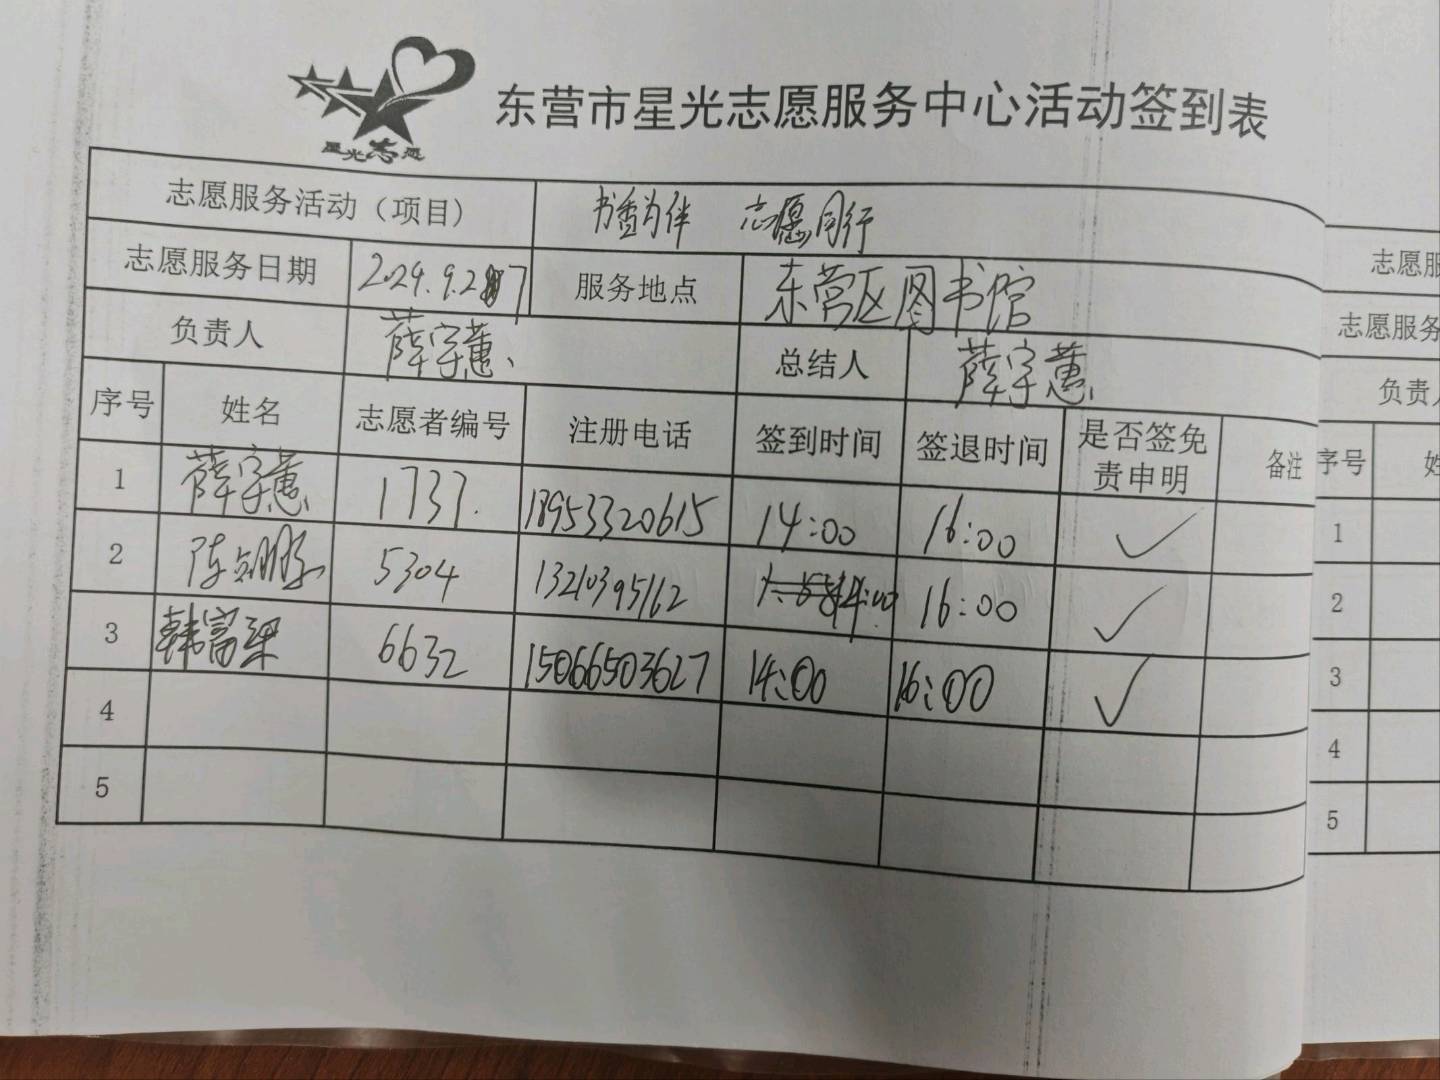 星光志愿
东营市星光志愿服务中心活动签到表
志愿服务活动（项目） 书香为伴 志愿同行
志愿服务日期 2024.9.27 服务地点 东营区图书馆
负责人 薛字蕙 总结人 薛字蕙
序号 姓名 志愿者编号 注册电话 签到时间 签退时间 是否签免责申明 备注
1 薛字蕙 1737. 18953320615 14:00 16:00 ✓
2 陈 5304 13210395162 14:00 16:00 ✓
3 韩富梁 6632 15066503627 14:00 16:00 ✓
4
5
志愿服
志愿服务
负责人
序号 姓
1
2
3
4
5